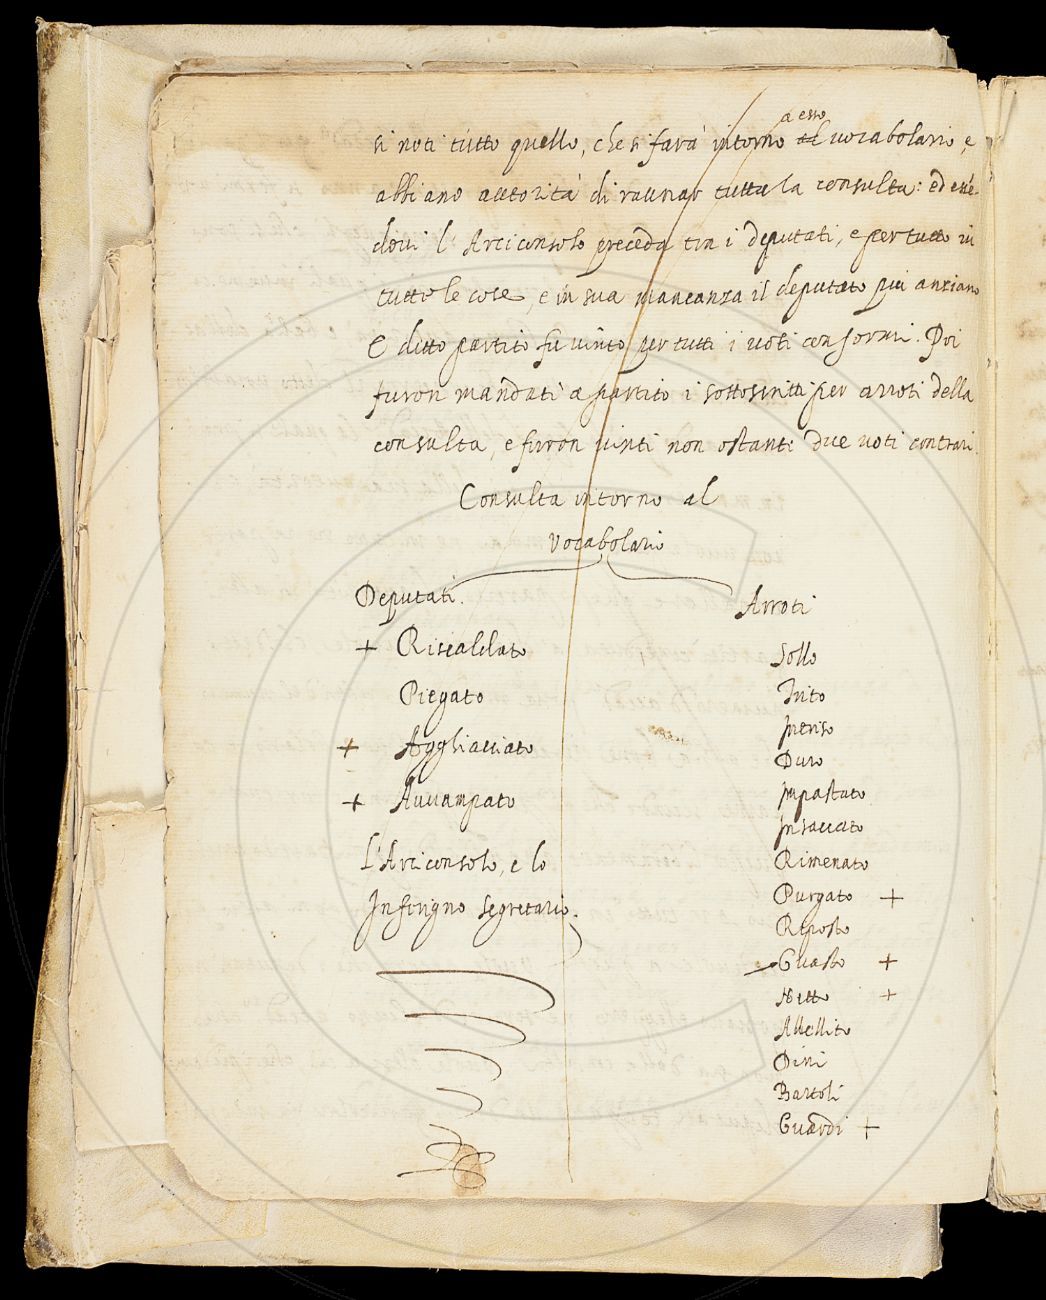 a esso
si noti tutto quello, che si farà intorno al vocabolario, e
abbiano autorità di raunar tutta la consulta: ed essẽ-
dovi l'Arciconsolo preceda tra i deputati, e per tutto in
tutte le cose, e in sua mancanza il deputato più anziano
E ditto partito fu vinto per tutti i voti conformi. Poi
furon mandati a partito i sottoscritti per arroti della
consulta, e furon vinti non ostanti due voti contrari.
Consulta intorno al
Vocabolario
Deputati.
+ Riscaldato
Piegato
+ Agghiacciato
+ Avvampato
L'Arciconsolo, e lo
Inferigno segretario.
Arroti
Sollo
Trito
Intriso
Duro
Impastato
Insaccato
Rimenato
Purgato +
Riposto
Guasto +
Netto +
Abbellito
Dini
Bartoli
Guardi +